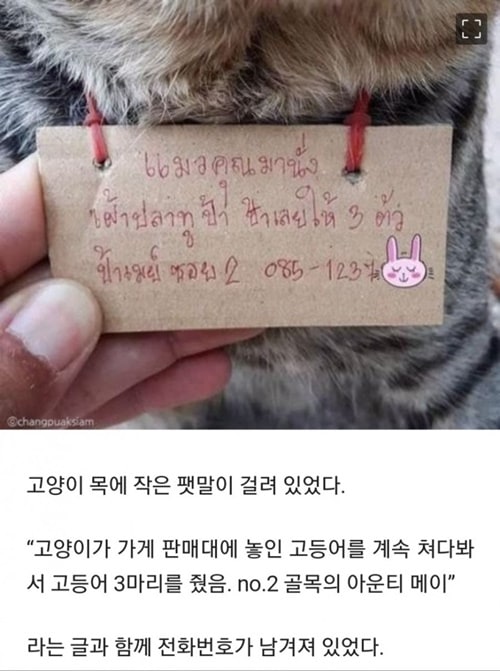 แมวคุณมานั่ง
เฝ้าปลาทูป้า ป้าเลยให้ 3 ตัว
ป้าเมย์ ซอย 2 085-1237
@changpuaksiam
고양이 목에 작은 팻말이 걸려 있었다.
“고양이가 가게 판매대에 놓인 고등어를 계속 쳐다봐
서 고등어 3마리를 줬음. no.2 골목의 아운티 메이”
라는 글과 함께 전화번호가 남겨져 있었다.